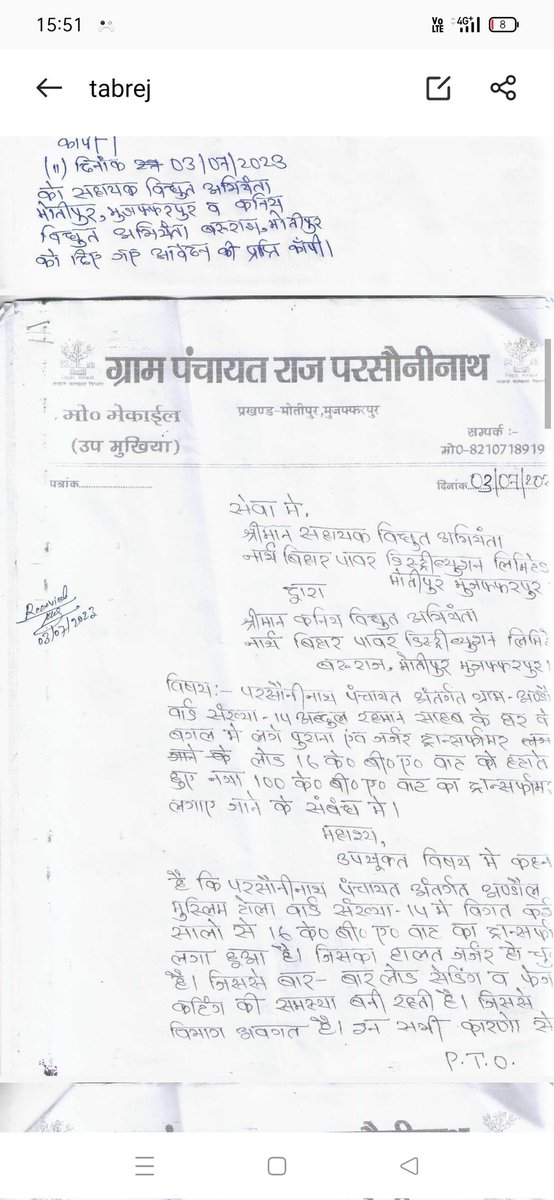 15:51
Vo LTE 4G+ 8
tabrej
(11) दिनांक 03/07/2023
को सहायक विद्युत अभियंता
मोतीपुर, मुजफ्फरपुर व कनिय
विद्युत अभियंता बरुराज, मोतीपुर
को दिए गए आवेदन की प्राप्ति कॉपी।
ग्राम पंचायत राज परसौनीनाथ
मो० मेकाईल
प्रखण्ड-मोतीपुर,मुजफ्फरपुर
(उप मुखिया)
सम्पर्क :–
मो0-8210718919
पत्रांक
दिनांक 03/07/202
सेवा मे,
श्रीमान सहायक विद्युत अभियंता
नार्थ बिहार पावर डिस्ट्रीब्यूशन लिमिटेड
मोतीपुर मुजफ्फरपुर
द्वारा
श्रीमान कनिय विद्युत अभियंता
Received
03/07/2023
नार्थ बिहार पावर डिस्ट्रीब्यूशन लिमि
बरुराज, मोतीपुर मुजफ्फरपुर।
विषय:- परसौनीनाथ पंचायत अंतर्गत ग्राम-
वार्ड संख्या-14 अब्दुल रहमान साहब के घर के
बगल मे लगे पुराना एवं जर्जर ट्रान्सफॉर्मर
जाने के लोड 16 के० बी० ए० वाट को हटाते
हुए नया 100 के० बी० ए० वाट का ट्रान्सफॉर्म
लगाए जाने के संबंध मे।
महाश्य,
उपर्युक्त विषय मे कहन
है कि परसौनीनाथ पंचायत अंतर्गत
मुस्लिम टोला वार्ड संख्या-14 मे विगत कई
सालो से 16 के० बी० ए० वाट का ट्रान्सफॉर्म
लगा हुआ है। जिसका हालत जर्जर हो चु
है। जिससे बार-बार लोड सेडिंग व फेज
कटिंग की समस्या बनी रहती है। जिससे
विभाग अवगत है। इन सभी कारणो से
P.T.O.